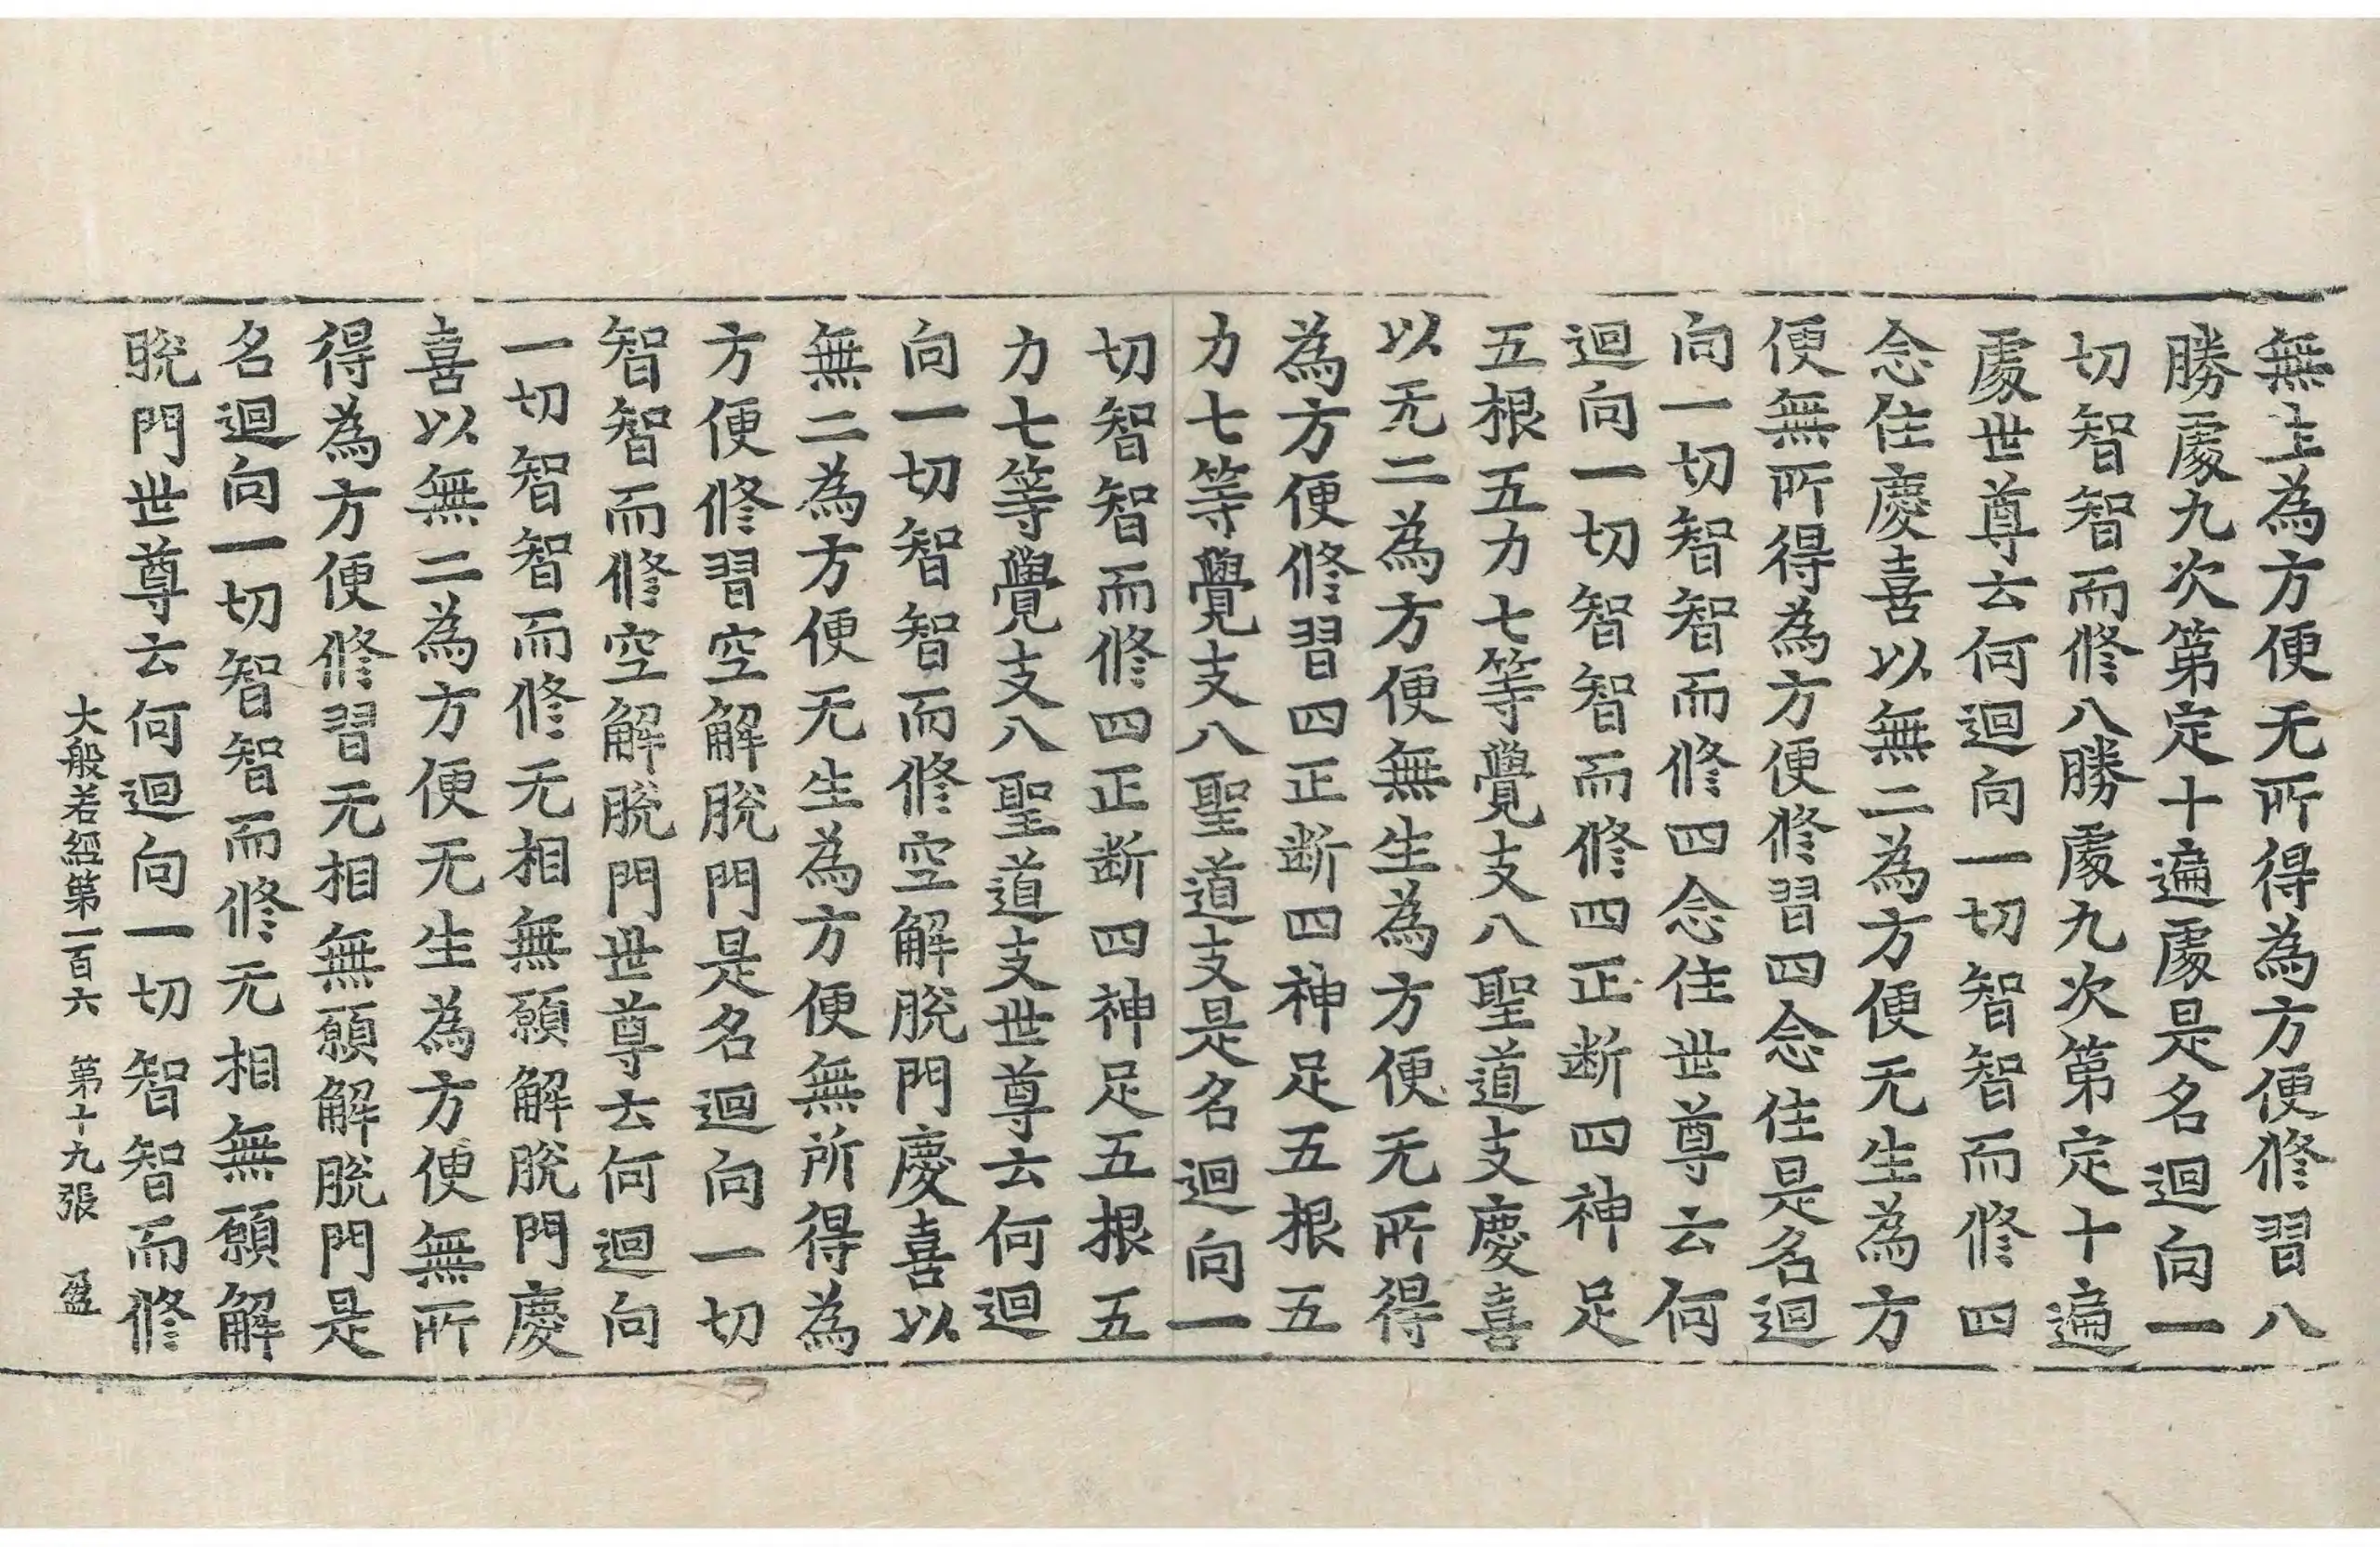 無生為方便无所得為方便修習八
勝處九次第定十遍處是名迴向一
切智智而修八勝處九次第定十遍
處世尊云何迴向一切智智而修四
念住慶喜以無二為方便无生為方
便無所得為方便修習四念住是名迴
向一切智智而修四念住世尊云何
迴向一切智智而修四正断四神足
五根五力七等覺支八聖道支慶喜
以无二為方便無生為方便无所得
為方便修習四正断四神足五根五
力七等覺支八聖道支是名迴向一
切智智而修四正断四神足五根五
力七等覺支八聖道支世尊云何迴
向一切智智而修空解脫門慶喜以
無二為方便无生為方便無所得為
方便修習空解脫門是名迴向一切
智智而修空解脫門世尊云何迴向
一切智智而修无相無願解脫門慶
喜以無二為方便无生為方便無所
得為方便修習无相無願解脫門是
名迴向一切智智而修无相無願解
脫門世尊云何迴向一切智智而修
大般若經第一百六 第十九張 盈